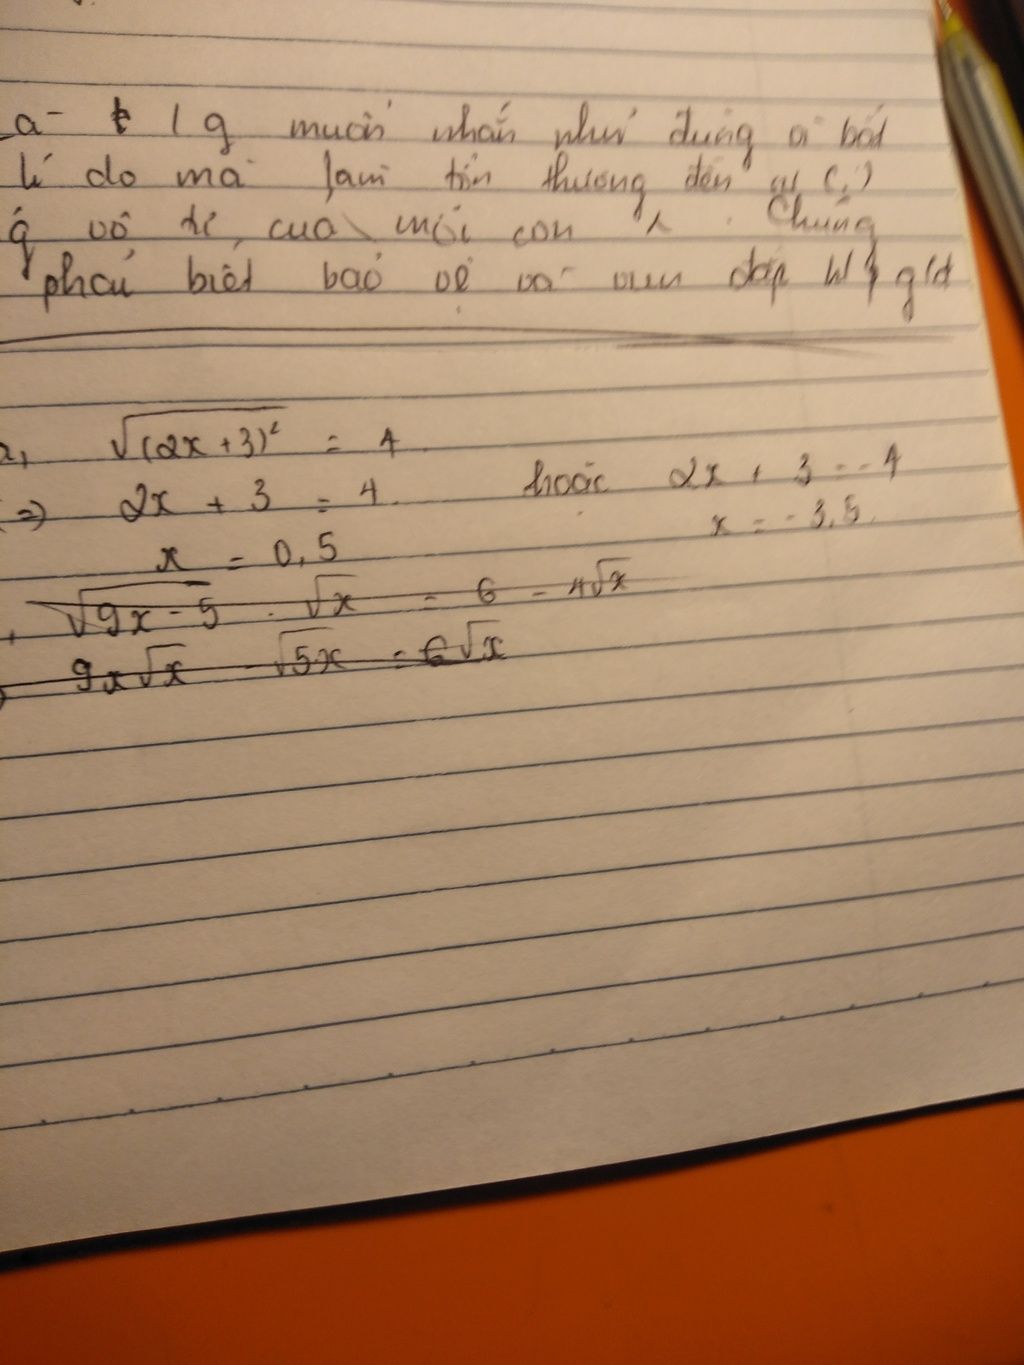 a- 1 g muốn nhắn như đừng vì bất
lí do mà làm tổn thương đến
vô của mỗi con . Chúng
phải biết bảo vệ và vun đắp
a, √(2x+3)² = 4
=> 2x + 3 = 4 hoặc 2x + 3 = -4
x = 0,5 x = -3,5
√9x-5 . √x = 6 - 4√x
9x√x - √5x = 6√x